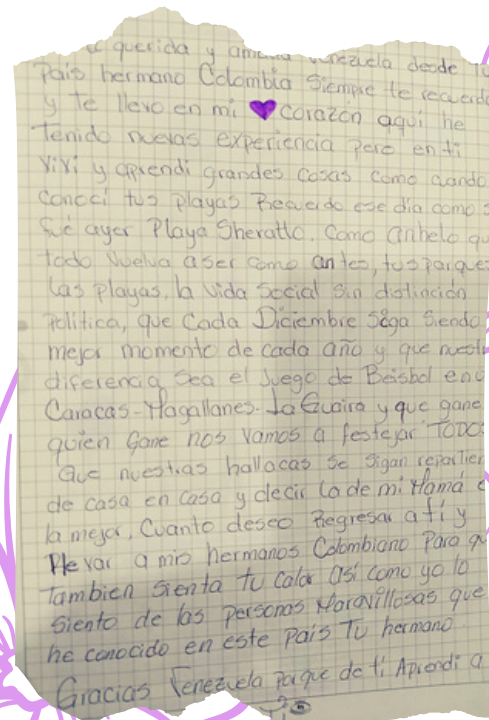 querida y amada Venezuela desde tu
País hermano Colombia Siempre te recuerdo
y te llevo en mi corazón aqui he
Tenido nuevas experiencia pero en ti
viví y aprendi grandes Cosas como cuando
conocí tus playas Recuerdo ese día como s
fué ayer Playa Sheratto. Como anhelo qu
todo vuelva a ser como antes, tus parques
Las playas, la vida Social sin distinción
política, que Cada Diciembre siga siendo
mejor momento de cada año y que nuest
diferencia sea el Juego de Beisbol en
Caracas-Magallanes. La Guaira y que gane
quien Gane nos vamos a festejar TODO
Que nuestras hallacas se sigan repartien
de casa en casa y decir la de mi Mamá e
la mejor, Cuanto deseo Regresar a tí y
llevar a mis hermanos Colombiano Para q
Tambien Sienta tu calor Así como yo lo
siento de las personas Maravillosas que
he conocido en este país Tu hermano
Gracias Venezuela porque de ti Aprendi a